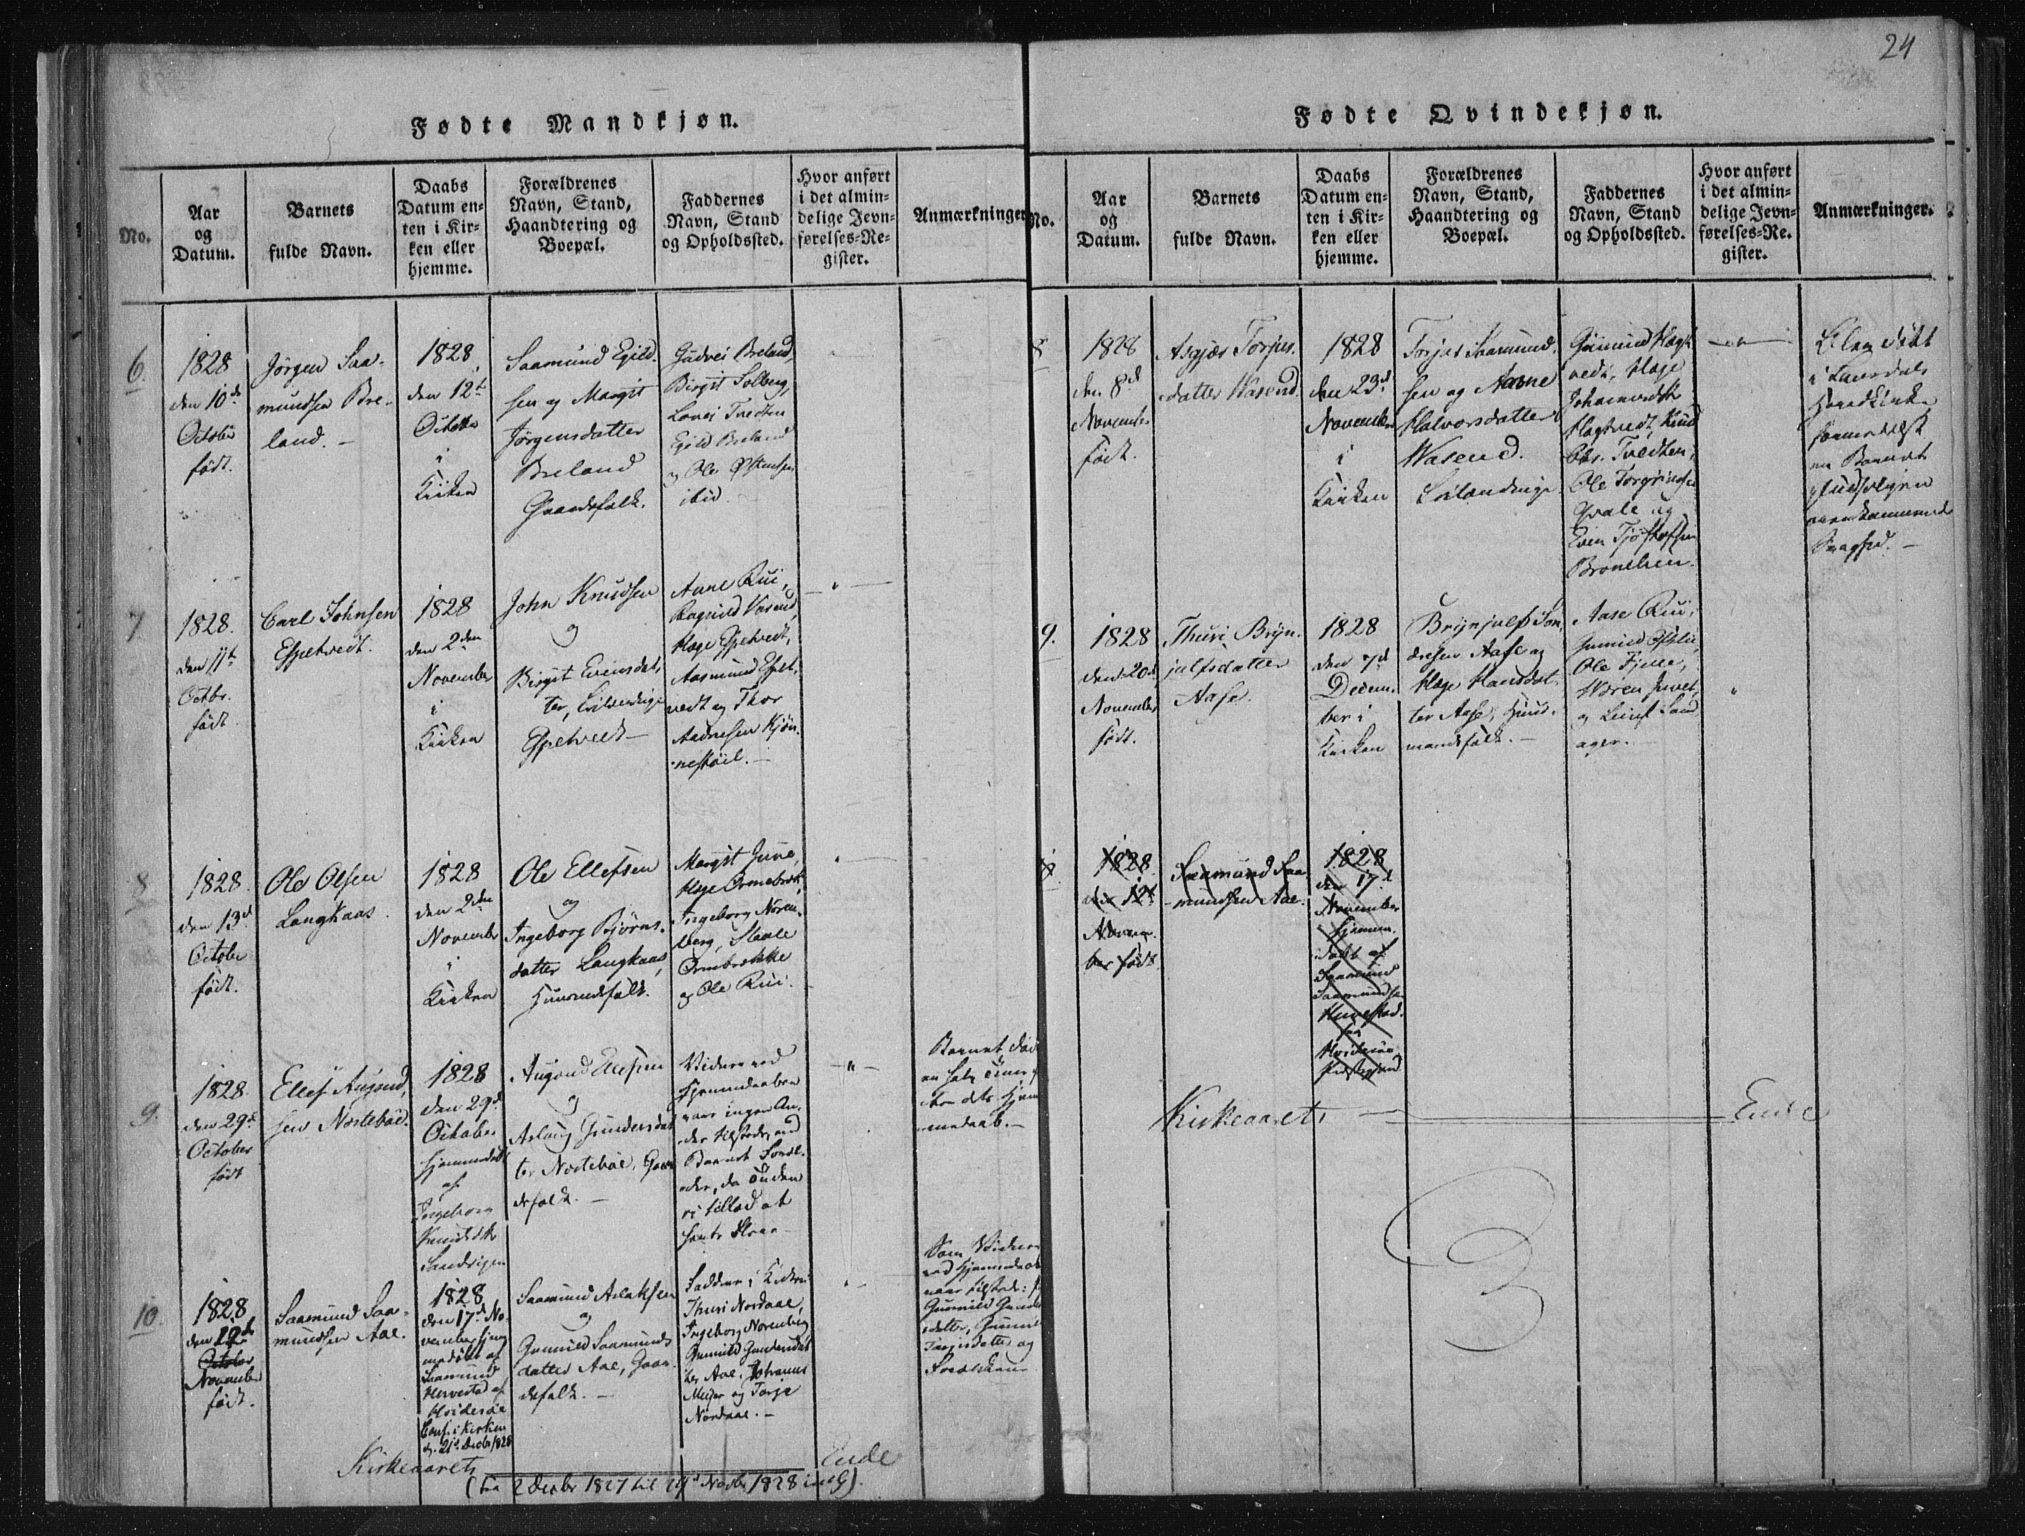 24
Fødte Mandkjøn.
No.
Aar
og
Datum.
Barnets
fulde Navn.
Daabs
Datum en-
ten i Kir-
ken eller
hjemme.
Forældrenes
Navn, Stand,
Haandtering og
Boepæl.
Faddernes
Navn, Stand
og Opholdssted.
Hvor anført
i det almin-
delige Jevn-
førelses-Re-
gister.
Anmærkninger
6.
1828
den 10de
October
født.
Jørgen Saa-
mundsen Bre-
land. -
1828
den 12t
October
i
Kirken
Saamund Egild-
sen og Margit
Jørgensdatter
Breland
Gaardefolk.
Gudvei Breland,
Birgit Solberg,
Lavei Tvedten
Egild Breland
og Ole Østensen
ibid.
7
1828.
den 11t
Octbr.
født.
Carl Johnsen
Espetvedt.
1828
den 2den
November
i
Kirken
John Knudsen
og
Birgit Evensdat-
ter,
Espetvedt
Anne Rui,
Ragnild Vasend
Hæge Espetvedt,
Aasmund Espet-
vedt og Thor
Andresen Kjøn-
nestøil. -
8
1828.
den 13d
October
født.
Ole Olsen
Langkaas.
1828
den 2den
November
i
Kirken
Ole Ellefsen
og
Ingeborg Bjørns-
datter Langkaas,
Huusmandsfolk.
Margit June,
Hæge Ormebrek,
Ingeborg Noren-
berg, Staale
Ormbrække
og Ole Rui.
9.
1828.
den 29d
October
født
Ellef Augund-
sen Nostebøe.
1828
den 29d
October
hjemmedøbt
af
Ingeborg
Sandvigen
Augond Ellefsen
og
Aslaug Gundersdat-
ter Nostebøe, Gaar-
defolk. -
Vidner ved
Hjemmedaaben
vare ingen An-
dre tilstede, end
Barnet
der, da Tiden
ei tillod at
hente
Barnet døde
en halv Time
efter dets Hjem-
medaab. -
10.
1828
den 12te
October
November
født.
Saamund Saa-
mundsen Aae.
1828
den 17d No-
vember hjem-
medøbt af
Saamund
Hervestad af
Hvidesøe
Conf. i Kirken
d. 21d Decbr 1828
Saamund Aslaksen
og
Gunnild Saamunds-
datter Aae, Gaar-
defolk. -
Faddere i Kirken:
Thuri Nordaae,
Ingeborg Norenberg
Gunnild Gundersdat-
ter Aae, Johannes
Meyer og Torje
Nordaae. -
Som Vidner
ved Hjemmedaab
vare tilstede:
Gunnild Gunder-
datter,
Torjusdatter og
Kirkeaarets Ende
(fra 2 Decbr 1827 til 24d Novbr 1828 incl).
Fødte Qvindekjøn.
No.
Aar
og
Datum.
Barnets
fulde Navn.
Daabs
Datum en-
ten i Kir-
ken eller
hjemme.
Forældrenes
Navn, Stand,
Haandtering og
Boepæl.
Faddernes
Navn, Stand
og Opholdssted.
Hvor anført
i det almin-
delige Jevn-
førelses-Re-
gister.
Anmærkninger.
8
1828
den 8d
November
født.
Asgjær Torjus-
datter Vasend.
1828
den 23d
November
i
Kirken
Torjus Aasmund-
sen og Aasne
Halvorsdatter
Vasend.
Gunnuld Hægt-
vedt, Hæge
Hægtvedt, Knud
Tvedten,
Ole Torgrimsen
Qvale og
Even Tjøstolfsen
Bronelien.
i Laurdals
Hovedkirke
Barnets
Svaghed. -
9.
1828
den 20d
November
født.
Thuri Bryn-
julfsdatter
Aase.
1828
den 7d
Decem-
ber i
Kirken
Brynjulf Son-
dresen Aase og
Hæge Hansdat-
ter Aase, Huus-
mandsfolk. -
Aase Rui,
Ole Fjelle,
og Leiuf Sand-
ager. -
8
1828
den 12t
Novem-
ber født
Saamund Saa-
mundsen Aae.
1828
den 17d
November
hjemme-
døbt af
Saamund
Saamundsen
Hervestad
fra
Hvidesøe
Præstegjeld
Kirkeaarets Ende